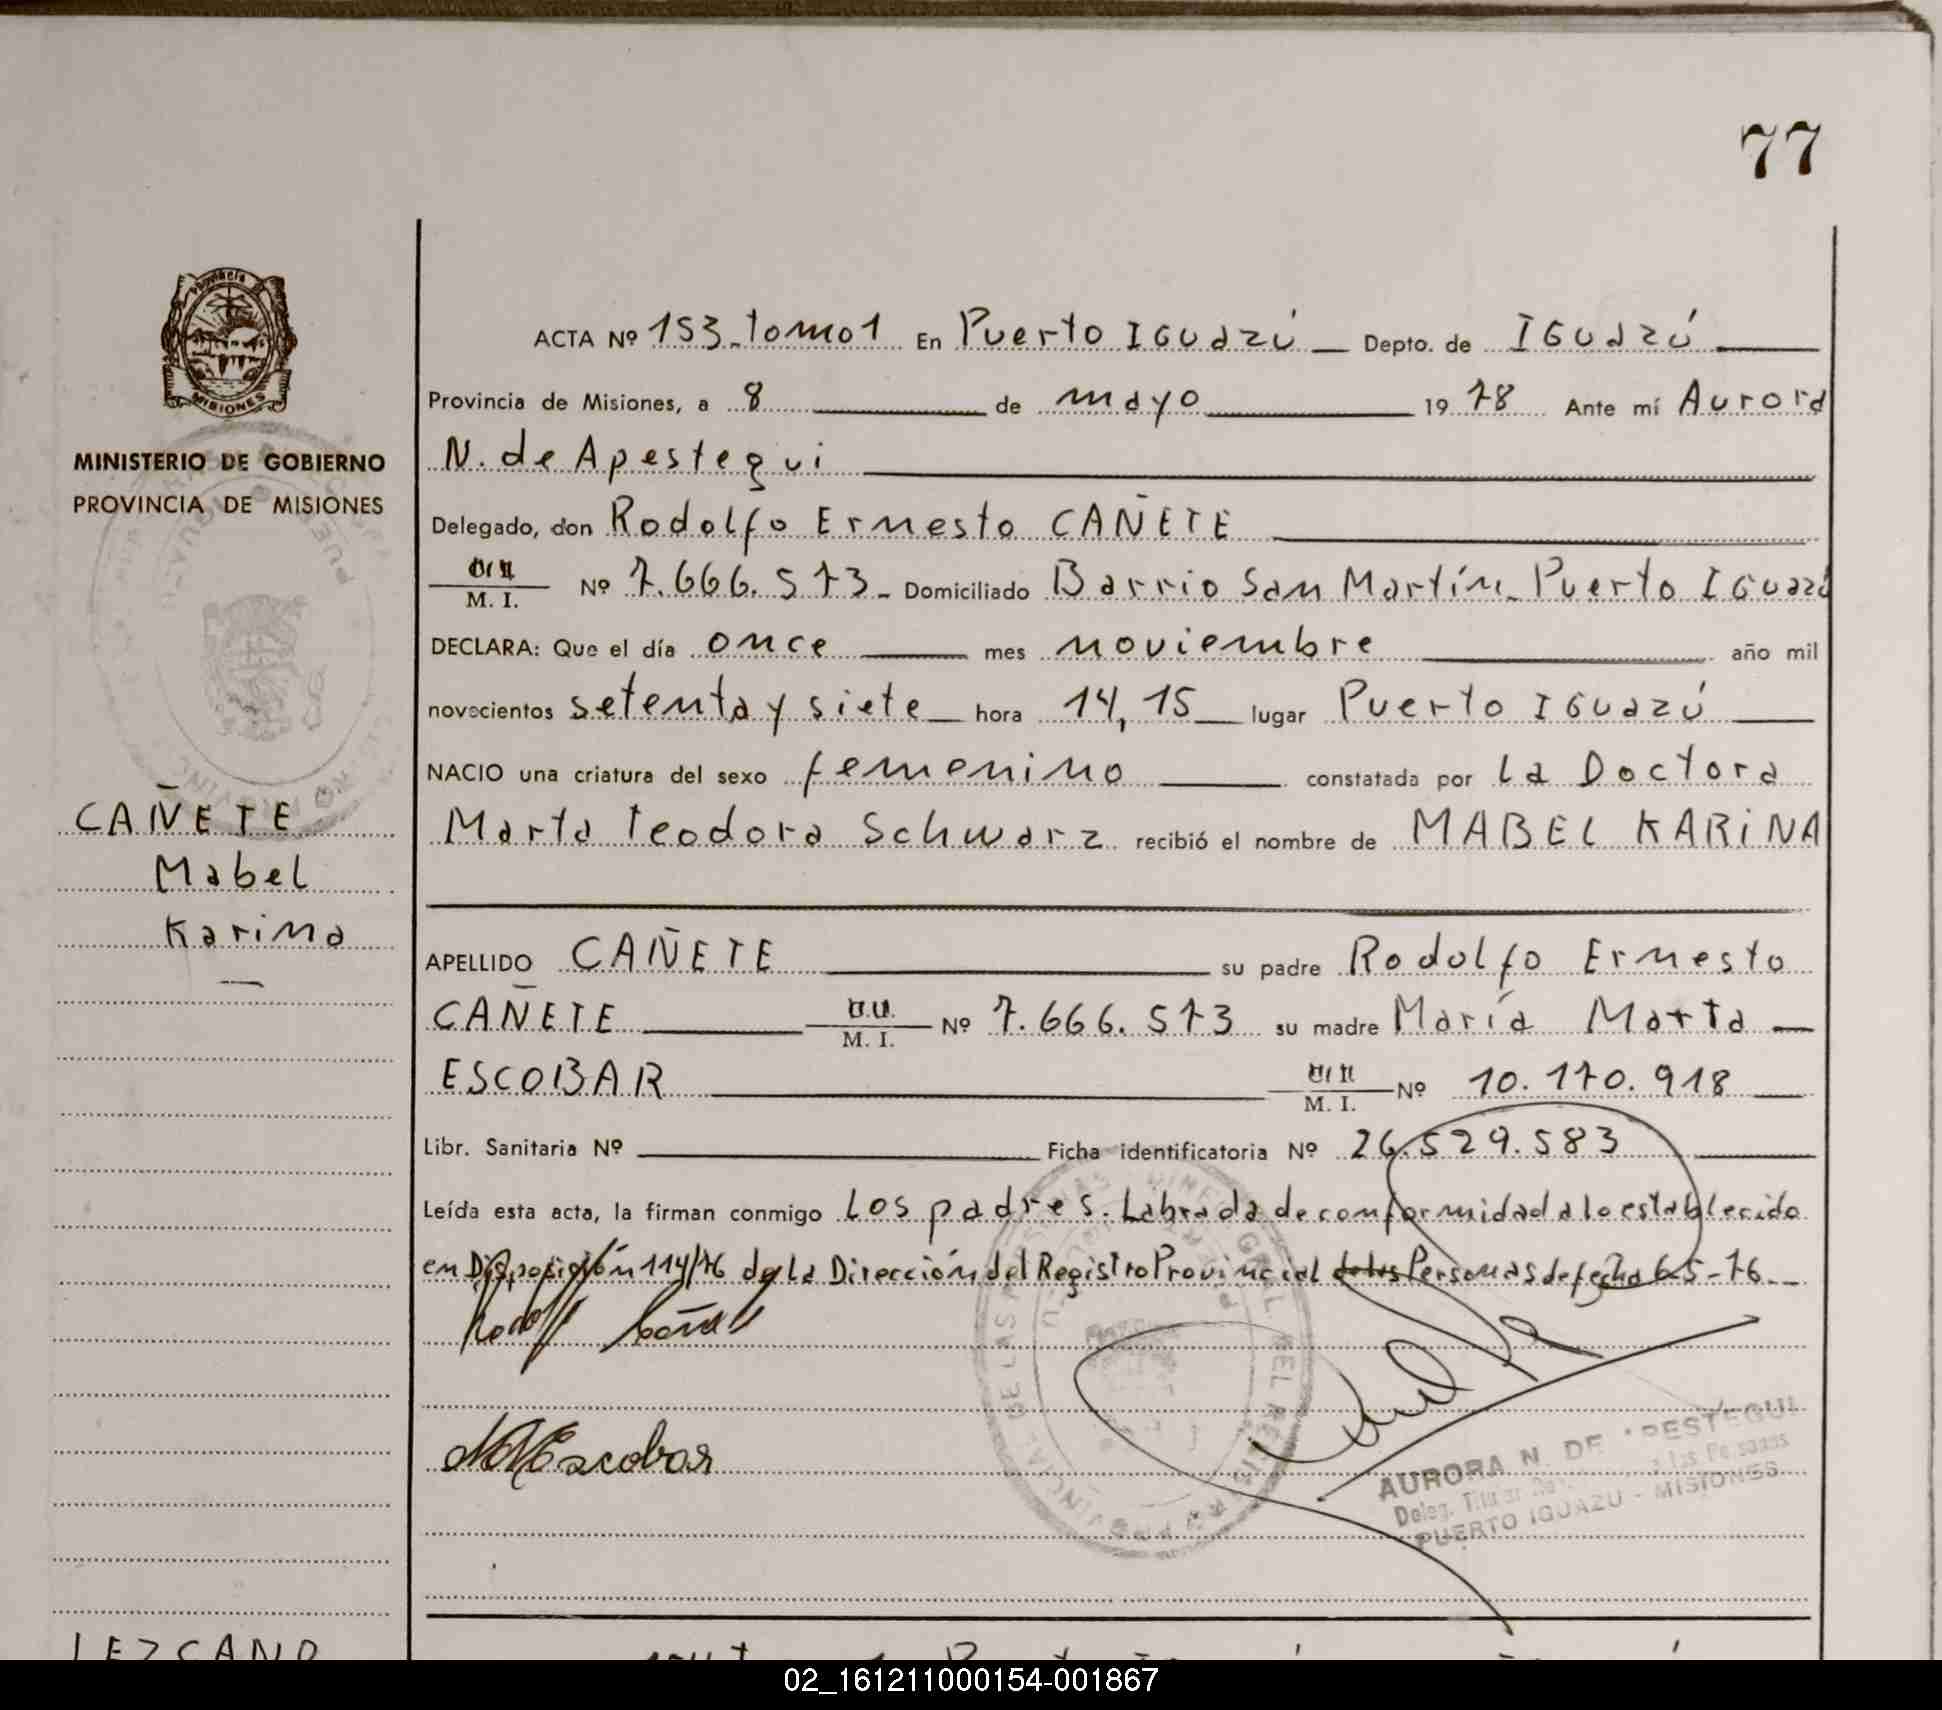 77
Provincia
MISIONES
MINISTERIO DE GOBIERNO
PROVINCIA DE MISIONES
CAÑETE
Mabel
Karina
ACTA Nº 153_tomo1 En Puerto IGUazú Depto. de IGUazú
Provincia de Misiones, a 8 de mayo 19 78 Ante mí Aurora
N. de Apestegui
Delegado, don Rodolfo Ernesto CAÑETE
M. I. Nº 7.666.573_ Domiciliado Barrio San Martín_ Puerto IGuazú
DECLARA: Que el día once mes noviembre año mil
novecientos setenta y siete hora 14,15 lugar Puerto IGuazú
NACIO una criatura del sexo femenino constatada por la Doctora
Marta Teodora Schwarz recibió el nombre de MABEL KARINA
APELLIDO CAÑETE su padre Rodolfo Ernesto
CAÑETE M. I. Nº 7.666.573 su madre María Marta
ESCOBAR M. I. Nº 10.170.918
Libr. Sanitaria Nº Ficha identificatoria Nº 26.529.583
Leída esta acta, la firman conmigo Los padres. Labrada de conformidad a lo establecido
en Disposición 114/76 de la Dirección del Registro Provincial de las Personas de fecha 6-5-76
MMEscobar
AURORA N. DE APESTEGUI
Deleg. Titular las Personas
PUERTO IGUAZU - MISIONES
LEZCANO
02_161211000154-001867